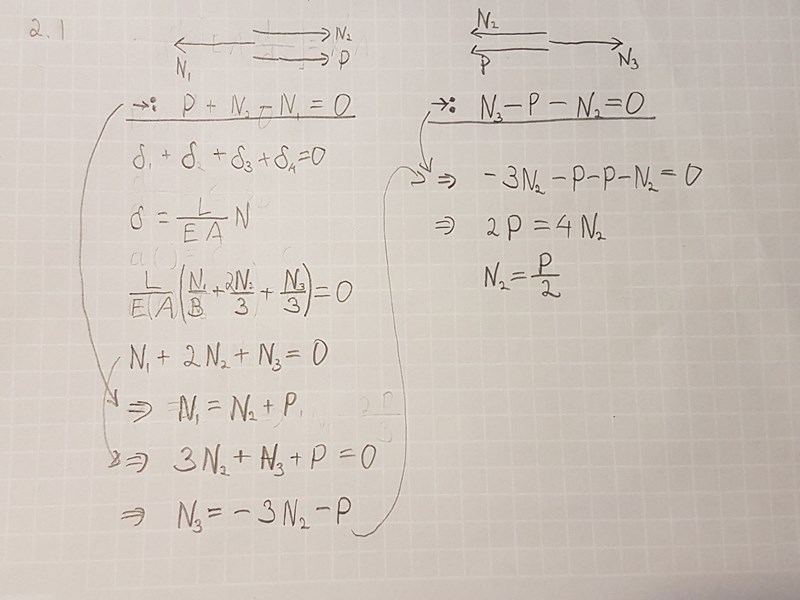 2.1
N₂
P
N₁
→: P + N₂ - N₁ = 0
δ₁ + δ₂ + δ₃ + δ₄ = 0
δ = L/EA N
L/EA (N₁/3 + 2N₂/3 + N₃/3) = 0
N₁ + 2N₂ + N₃ = 0
⇒ N₁ = N₂ + P
⇒ 3N₂ + N₃ + P = 0
⇒ N₃ = -3N₂ - P
N₂
P
N₃
→: N₃ - P - N₂ = 0
⇒ -3N₂ - P - P - N₂ = 0
⇒ 2P = 4N₂
N₂ = P/2